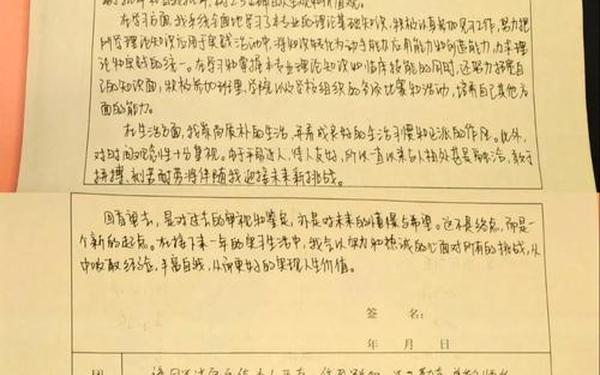 在学习方面,我系统全面地学习了本专业的理论基础知识,积极认真参加见习工作,努力把
所学理论知识应用于实践活动中,将知识转化为动手能力后有能力和创造能力,力求理
论和实践的统一。在学习和掌握本专业理论知识和临床技能的同时,还努力拓宽自
己的知识面;积极参加班里、学校以及学校组织的各项比赛和活动,培养自己其他方
面的能力。
在生活方面,我崇尚质朴的生活,养成良好的生活习惯和正派的作风。此外,
对时间观念性十分重视。由于平易近人,待人友好,所以一直以来与人相处甚是融洽,敢于
拼搏、刻苦耐劳将伴随我迎接未来新挑战。
回首望去,是对过去的审视和鉴定,亦是对未来的憧憬与希望。这不是终点,而是一
个新的起点。在接下来一年的实习生活中,我会以努力和热诚的心面对所有的挑战,从
中吸取经验,丰富自我,从而更好的实现人生价值。
签名:
年 月 日